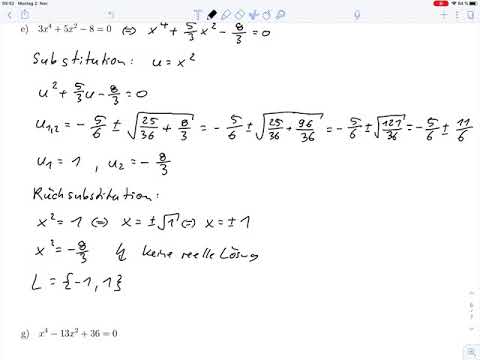 09:53 Montag 2. Nov. 94 %
e) 3x⁴ + 5x² − 8 = 0 ⇔ x⁴ + 5/3 x² − 8/3 = 0
Substitution: u = x²
u² + 5/3 u − 8/3 = 0
u₁,₂ = − 5/6 ± √(25/36 + 8/3) = − 5/6 ± √(25/36 + 96/36) = − 5/6 ± √(121/36) = − 5/6 ± 11/6
u₁ = 1 , u₂ = − 8/3
Rücksubstitution:
x² = 1 ⇔ x = ±√1 ⇔ x = ±1
x² = − 8/3 ↯ keine reelle Lösung
L = {−1, 1}
g) x⁴ − 13x² + 36 = 0